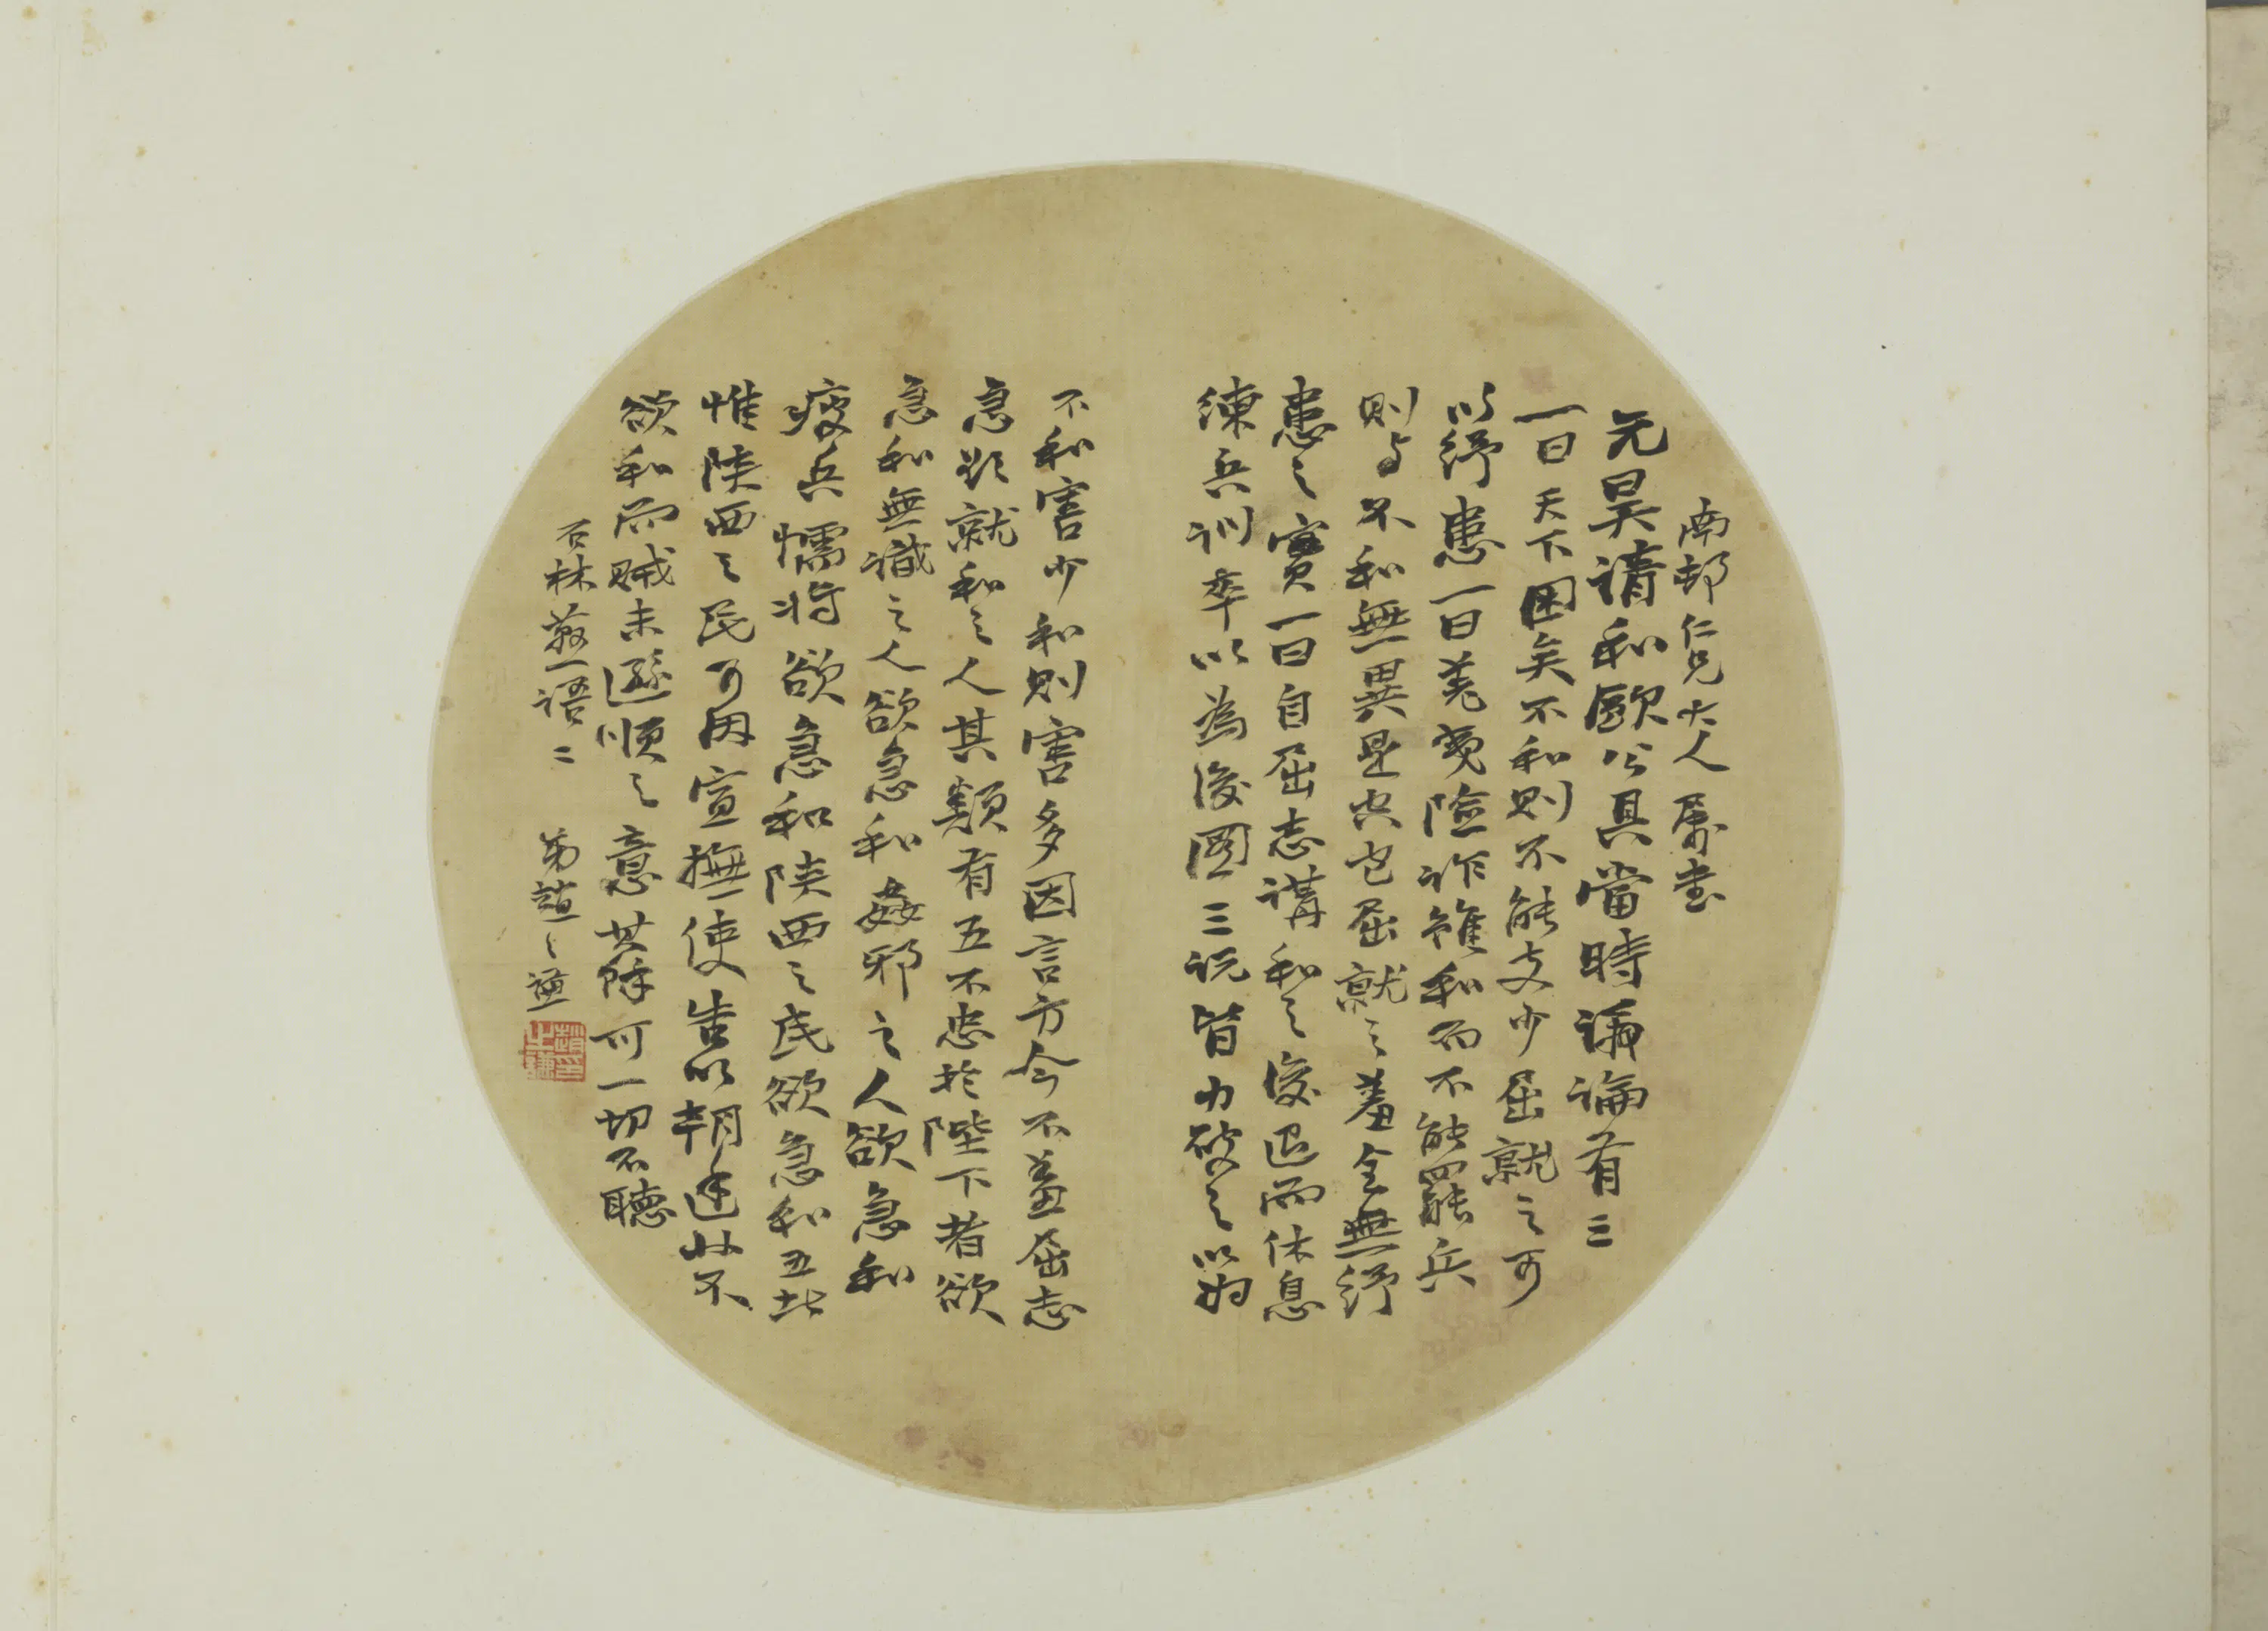 南邨仁兄大人屬書
元昊請和歐公具當時議論有三
一曰天下困矣不和則不能支少屈就之可
以紓患一曰羌夷險詐雖和而不能罷兵
則與不和無異是空包屈就之羞全無紓
患之實一曰自屈志講和之後退而休息
練兵訓卒以為後圖三說皆力破之以為
不和害少和則害多因言方今不羞屈志
急欲就和之人其類有五不忠於陛下者欲
急和無識之人欲急和姦邪之人欲急和
疲兵懦將欲急和陝西之民欲急和五者
惟陝西之民可因宣撫使告以朝廷非不
欲和而賊未遜順之意其餘可一切不聽
石林燕語二 弟趙之謙
趙之謙印